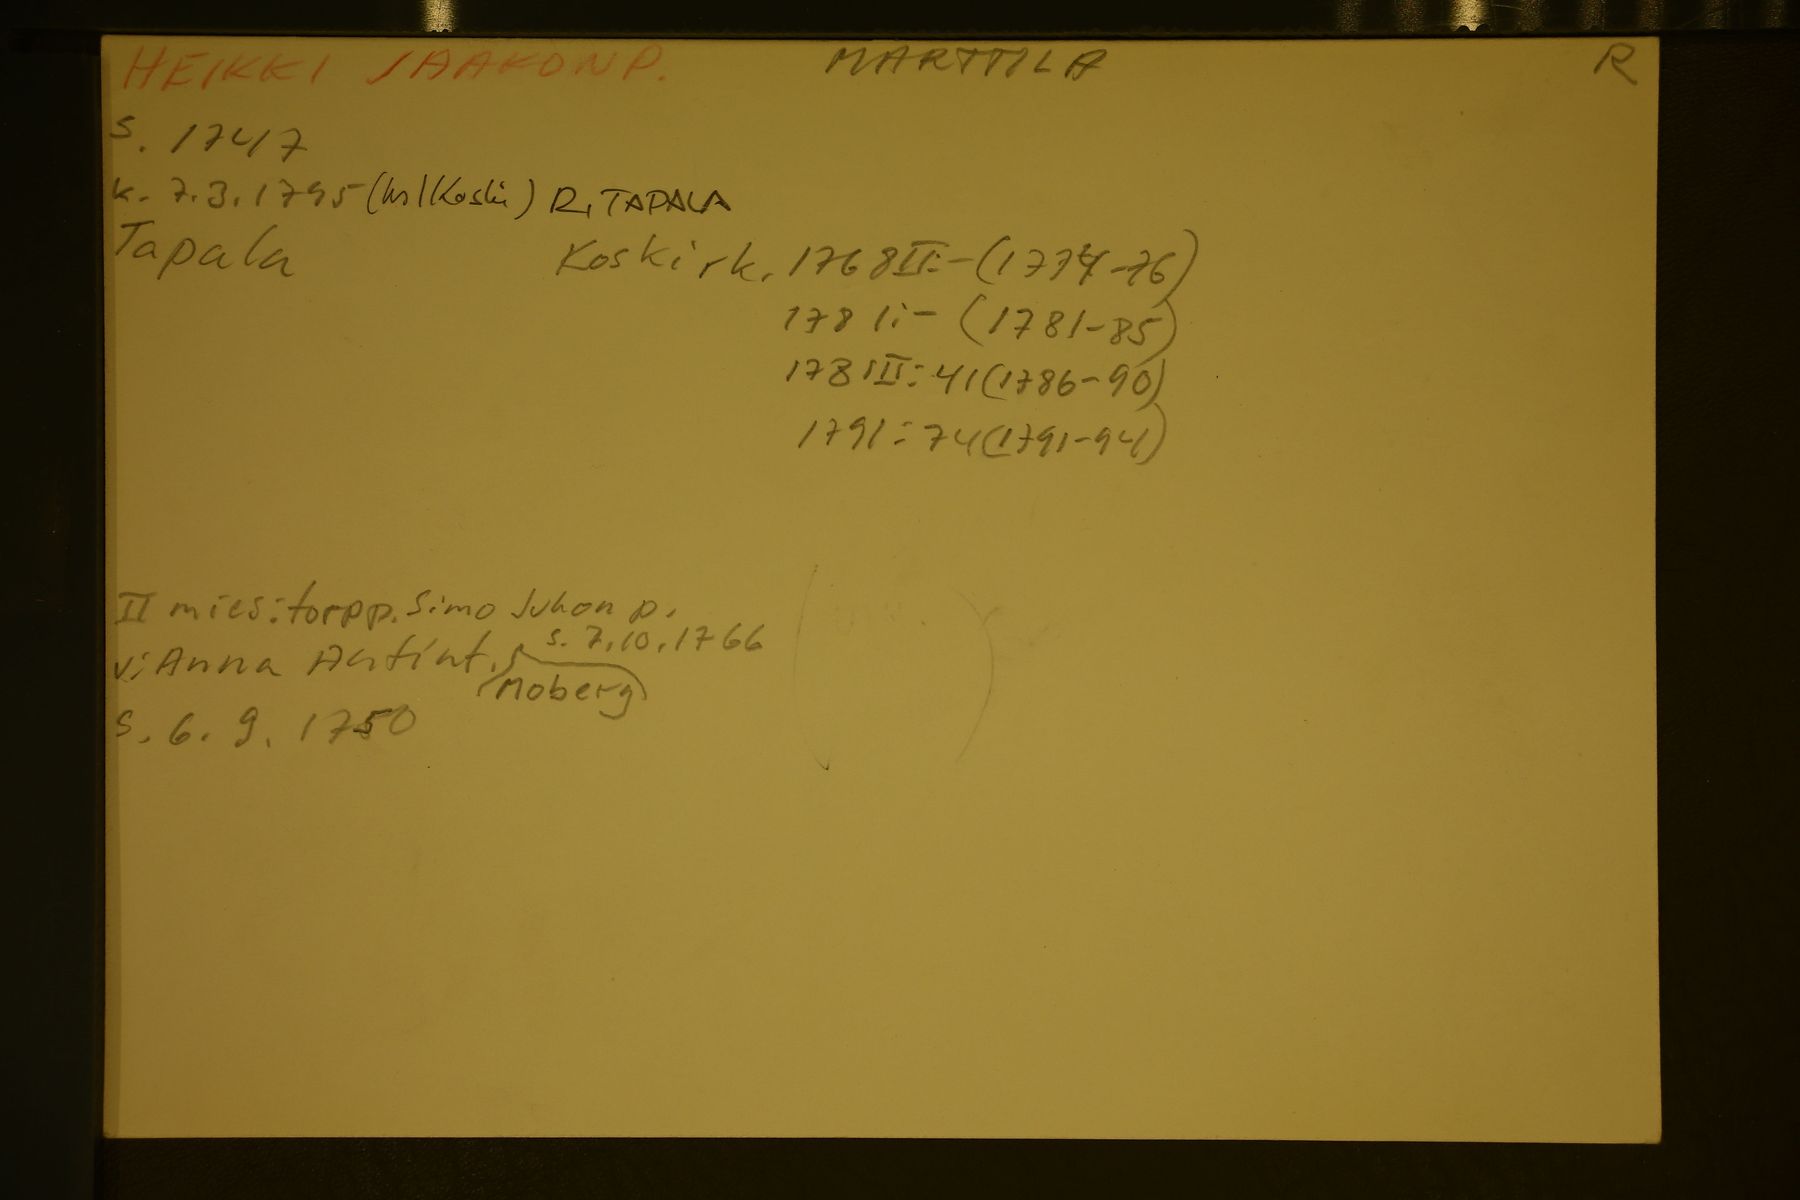 HEIKKI JAAKONP. MARTTILA R
s. 1747
k. 7.3.1795 (hs/Koski) R, TAPALA
Tapala Koski rk. 1768II:-(1774-76)
1781:- (1781-85)
1781II:41(1786-90)
1791:74(1791-94)
II mies:torpp. Simo Juhon p.
s. 7.10.1766
v: Anna Antint.
(Moberg)
s. 6.9.1750